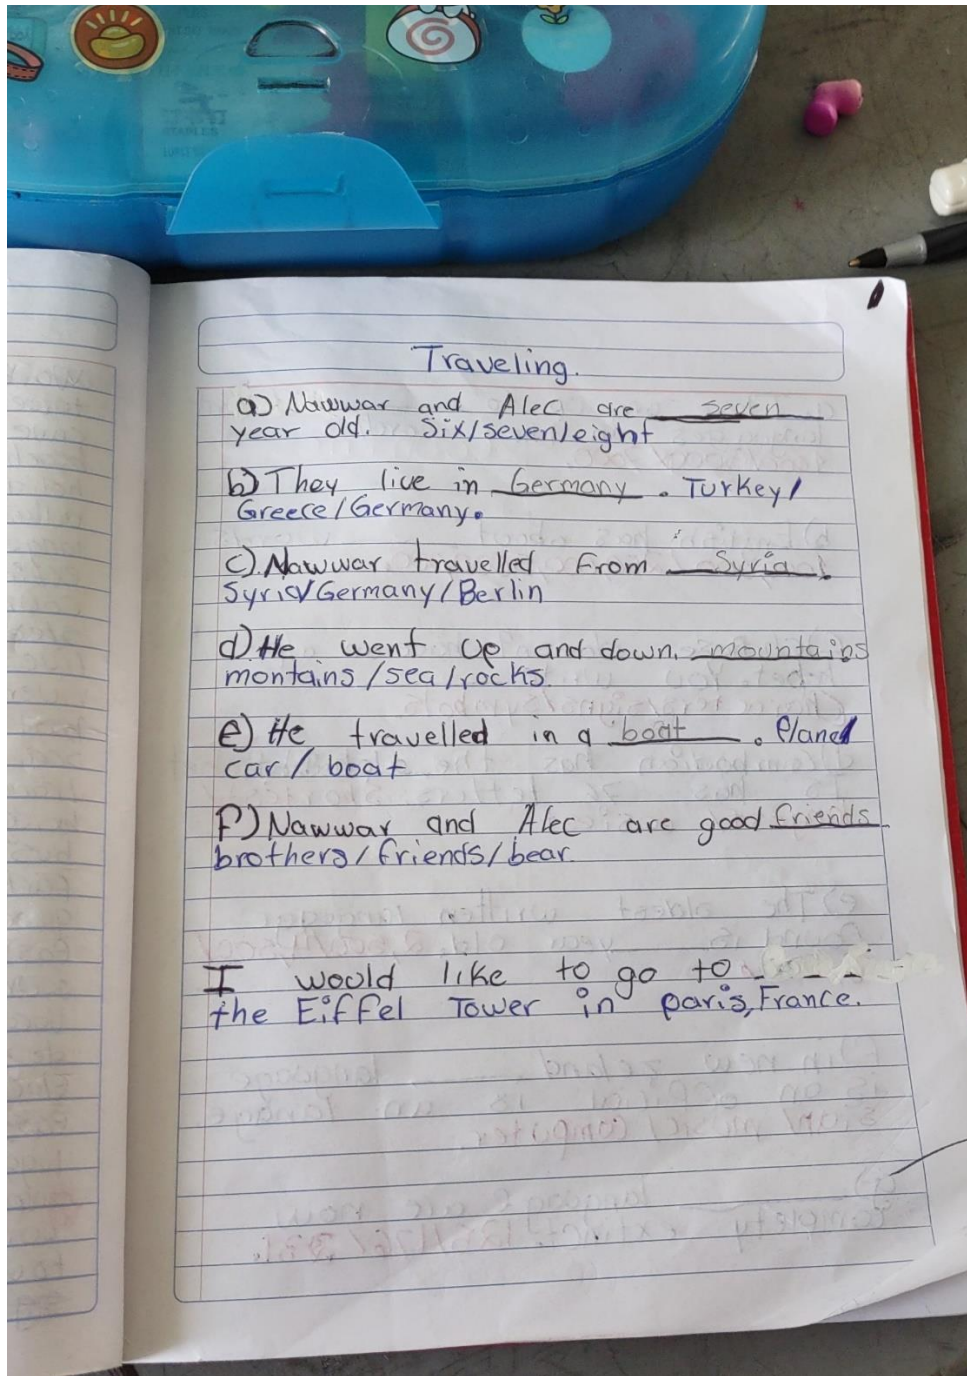 Traveling.
a) Nawwar and Alec are seven
year old. Six/seven/eight
b) They live in Germany. Turkey/
Greece/Germany.
c) Nawwar travelled from Syria.
Syria/Germany/Berlin
d) He went up and down. mountains
montains/sea/rocks.
e) He travelled in a boat. Plane/
car/boat
f) Nawwar and Alec are good friends
brothers/friends/bear.
I would like to go to
the Eiffel Tower in paris, France.